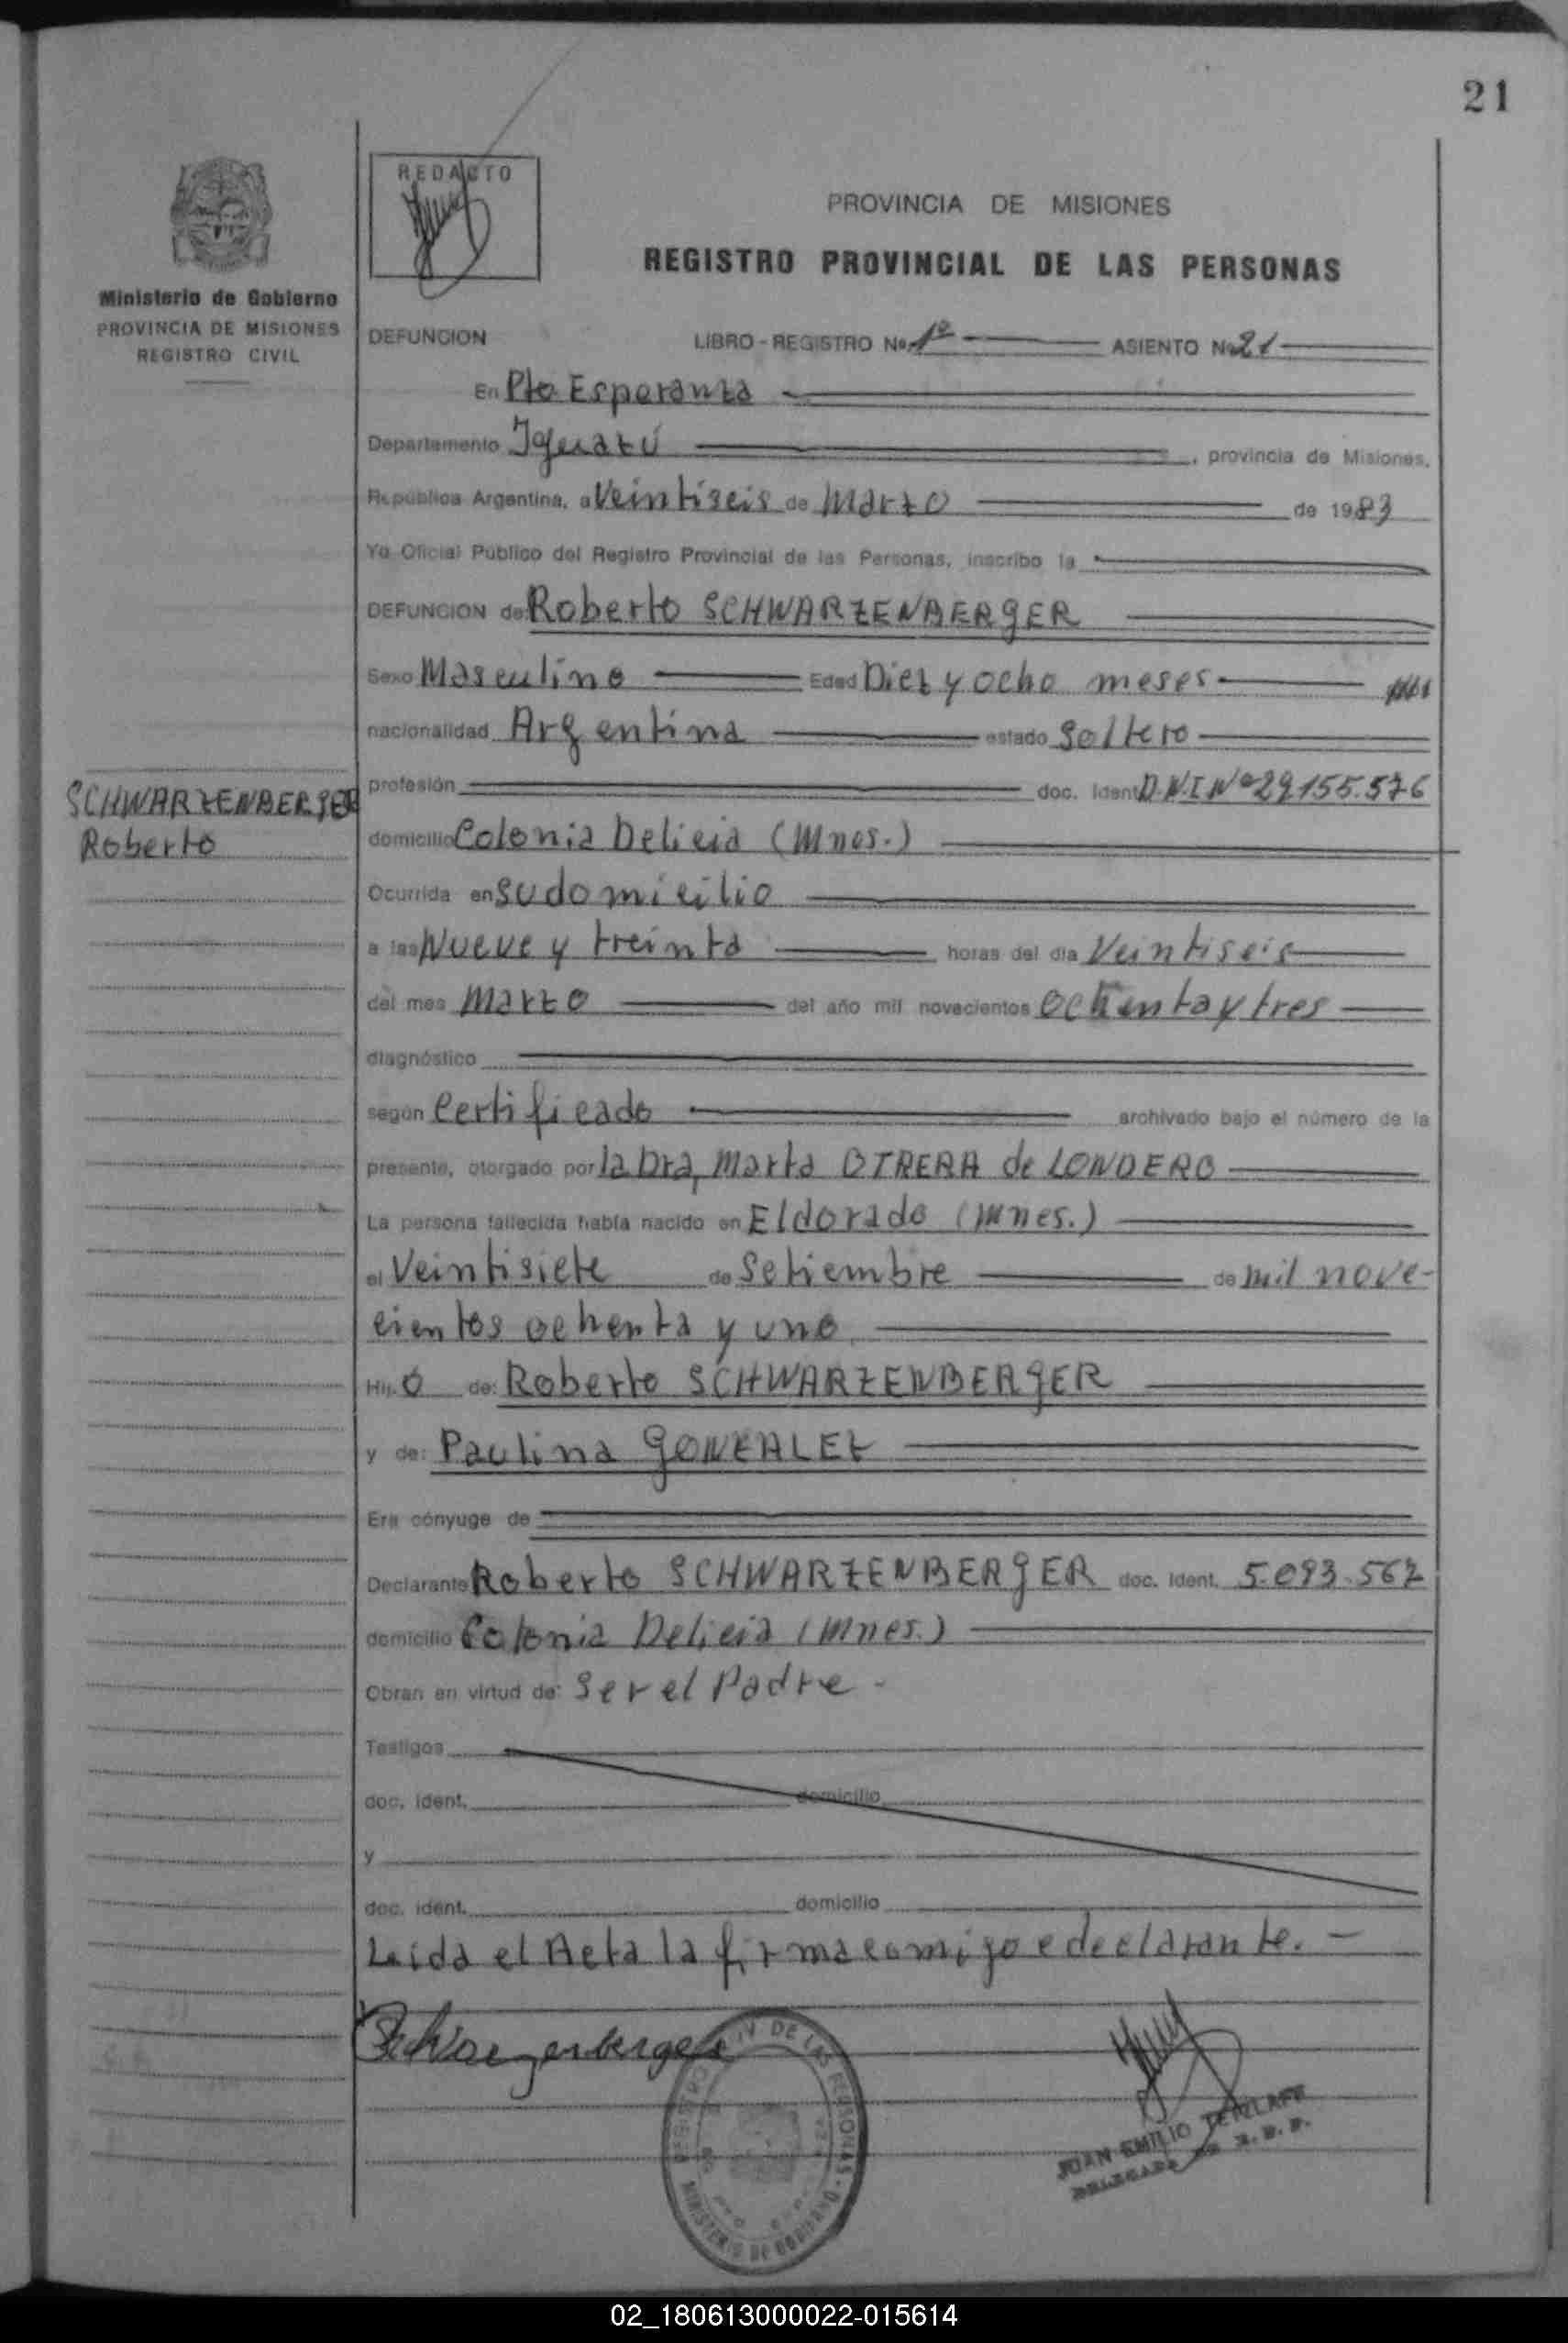 21
REDACTO
PROVINCIA DE MISIONES
REGISTRO PROVINCIAL DE LAS PERSONAS
Ministerio de Gobierno
PROVINCIA DE MISIONES
REGISTRO CIVIL
DEFUNCION LIBRO - REGISTRO No. 1º ASIENTO No 21
En Pto Esperanza
Departamento Iguazú, provincia de Misiones,
República Argentina, a Veintiseis de Marzo de 1983
Yo Oficial Público del Registro Provincial de las Personas, inscribo la
DEFUNCION de Roberto SCHWARZENBERGER
Sexo Masculino Edad Diez y ocho meses
nacionalidad Argentina estado Soltero
profesión doc. Ident. D.N.I Nº 29.155.576
SCHWARZENBERGER
Roberto
domicilio Colonia Delicia (Mnes.)
Ocurrida en su domicilio
a las Nueve y treinta horas del día Veintiseis
del mes Marzo del año mil novecientos ochenta y tres
diagnóstico
según Certificado archivado bajo el número de la
presente, otorgado por la Dra, Marta OTRERA de LONDERO
La persona fallecida había nacido en Eldorado (Mnes.)
el Veintisiete de Setiembre de mil nove-
cientos ochenta y uno
Hijo de: Roberto SCHWARZENBERGER
y de: Paulina GONZALEZ
Era cónyuge de
Declarante Roberto SCHWARZENBERGER doc. Ident. 5.093.562
domicilio Colonia Delicia (Mnes.)
Obran en virtud de: Ser el Padre -
Testigos
doc. ident. domicilio
y
doc. ident. domicilio
Leida el Acta la firma comigo e declarante. -
Schwarzenberger
JUAN EMILIO TETZLAFF
DELEGADO DE R. P. P.
MINISTERIO DE GOBIERNO
02_180613000022-015614